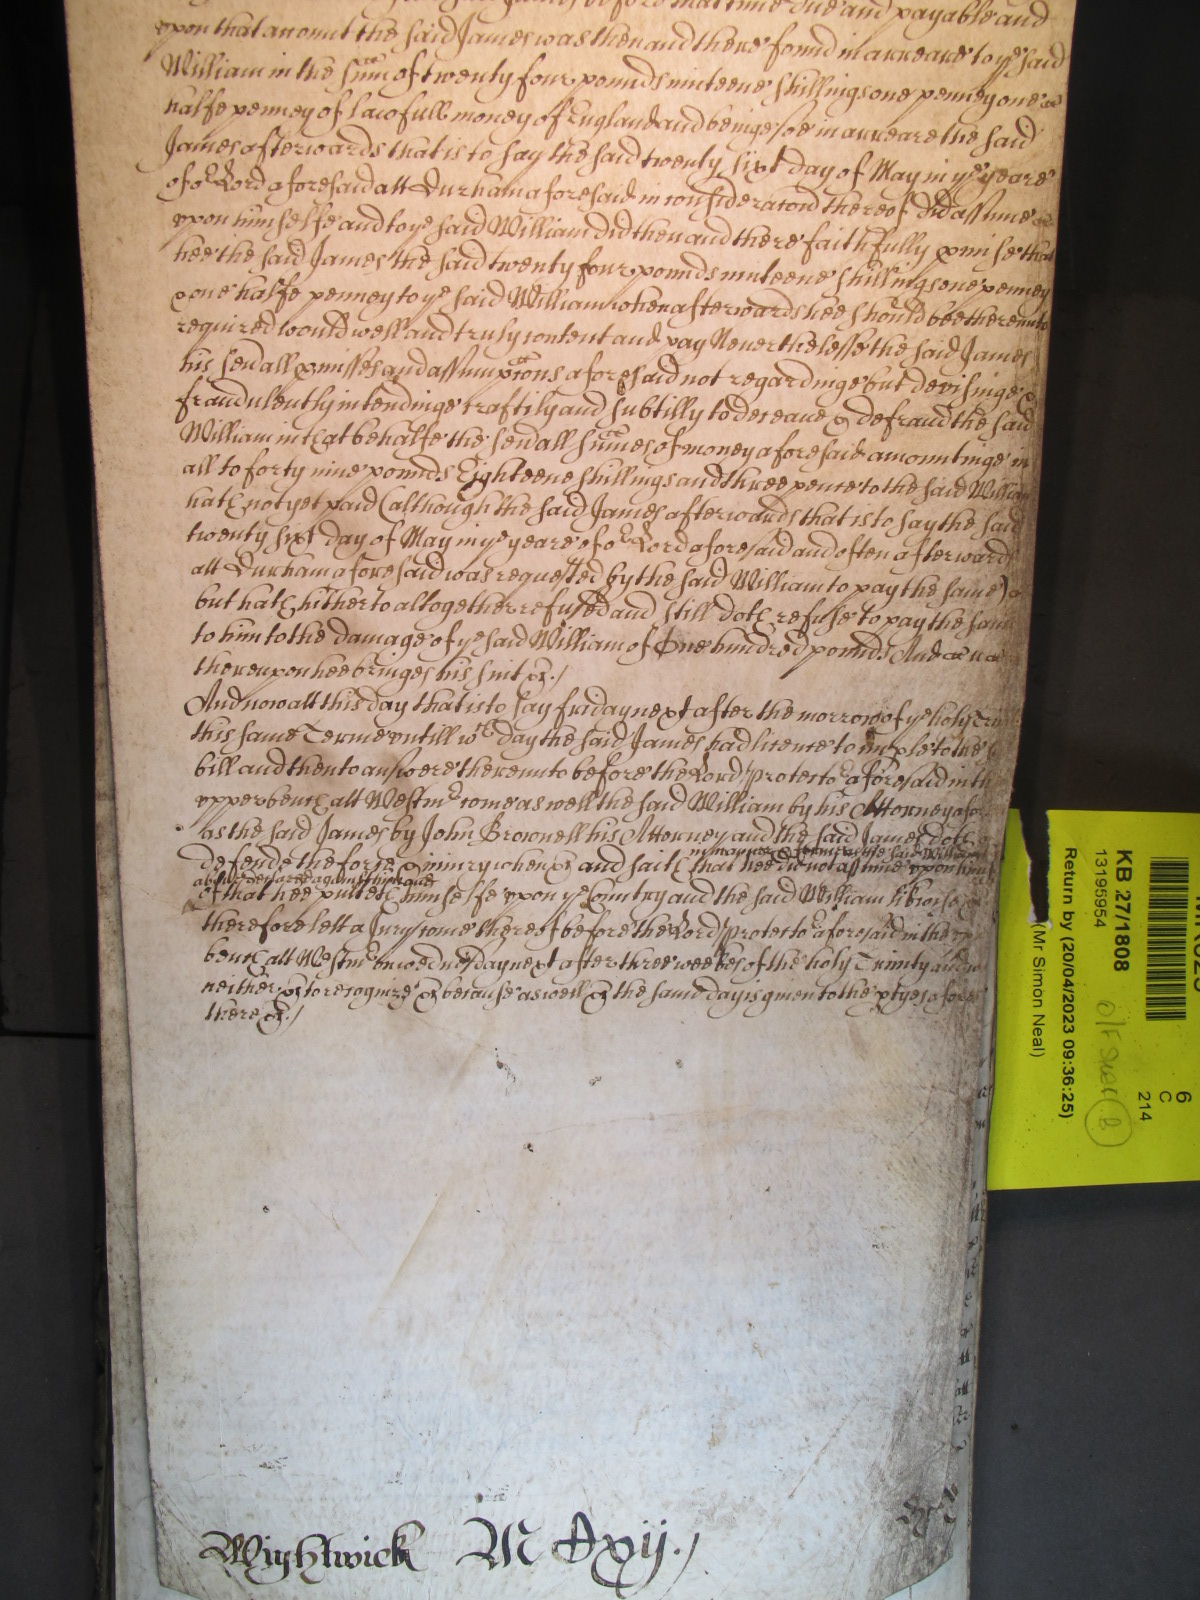 before that time due and payable and
upon that accompt the said James was then and there found in arreare to ye said
William in the sume of twenty four pounds ninteene shillings one penney one
halfe penney of lawfull money of England and beinge soe in arreare the said
James afterwards that is to say the said twenty sixt day of May in ye yeare
of or Lord aforesaid att Durham aforesaid in consideracon thereof did assume
upon himselfe and to ye said William did then and there faithfully pmise that
hee the said James the said twenty four pounds ninteene shillings one penney
& one halfe penney to ye said William when afterwards hee should bee thereunto
required would well and truly content and pay Neverthelesse the said James
his sevall pmisses and assumpcons aforesaid not regardinge but devisinge &
fraudulently intendinge craftily and subtilly to deceave & defraud the said
William in that behalfe the sevall sumes of money aforesaid amountinge in
all to forty nine pounds Eighteene shillings and three pence to the said William
hath not yet paid (although the said James afterwards that is to say the said
twenty sixt day of May in ye yeare of or Lord aforesaid and often afterwards
att Durham aforesaid was requested by the said William to pay the same)
but hath hitherto altogether refused and still doth refuse to pay the same
to him to the damage of ye said William of One hundred pounds And
thereupon hee bringes his suit &c./
And now att this day that is to say friday next after the morrow of ye holy
this same Terme untill wch day the said James had licence to imple to the
bill and then to answere thereunto before the Lord Protector aforesaid in th
upper bench att Westmr come as well the said William by his Attorney afor
as the said James by John Brownell his Attorney and the said James doth
defende the force & iniury when &c and saith that hee did not assume upon him
in manner & forme as the said William
above declared against him and
of that hee putteth himselfe upon ye Country and the said William likewise &c
therefore lett a Jury come thereof before the Lord Protector aforesaid in the upp
bench att Westmr on wednesday next after three weekes of the holy Trinity and
neither &c to recognize &c because as well &c the same day is given to the ptyes afores
there &c./
Wightwick M Dxij./
KB 27/1808
13195954
Return by (20/04/2023 09:36:25)
(Mr Simon Neal)
6
C
214
B